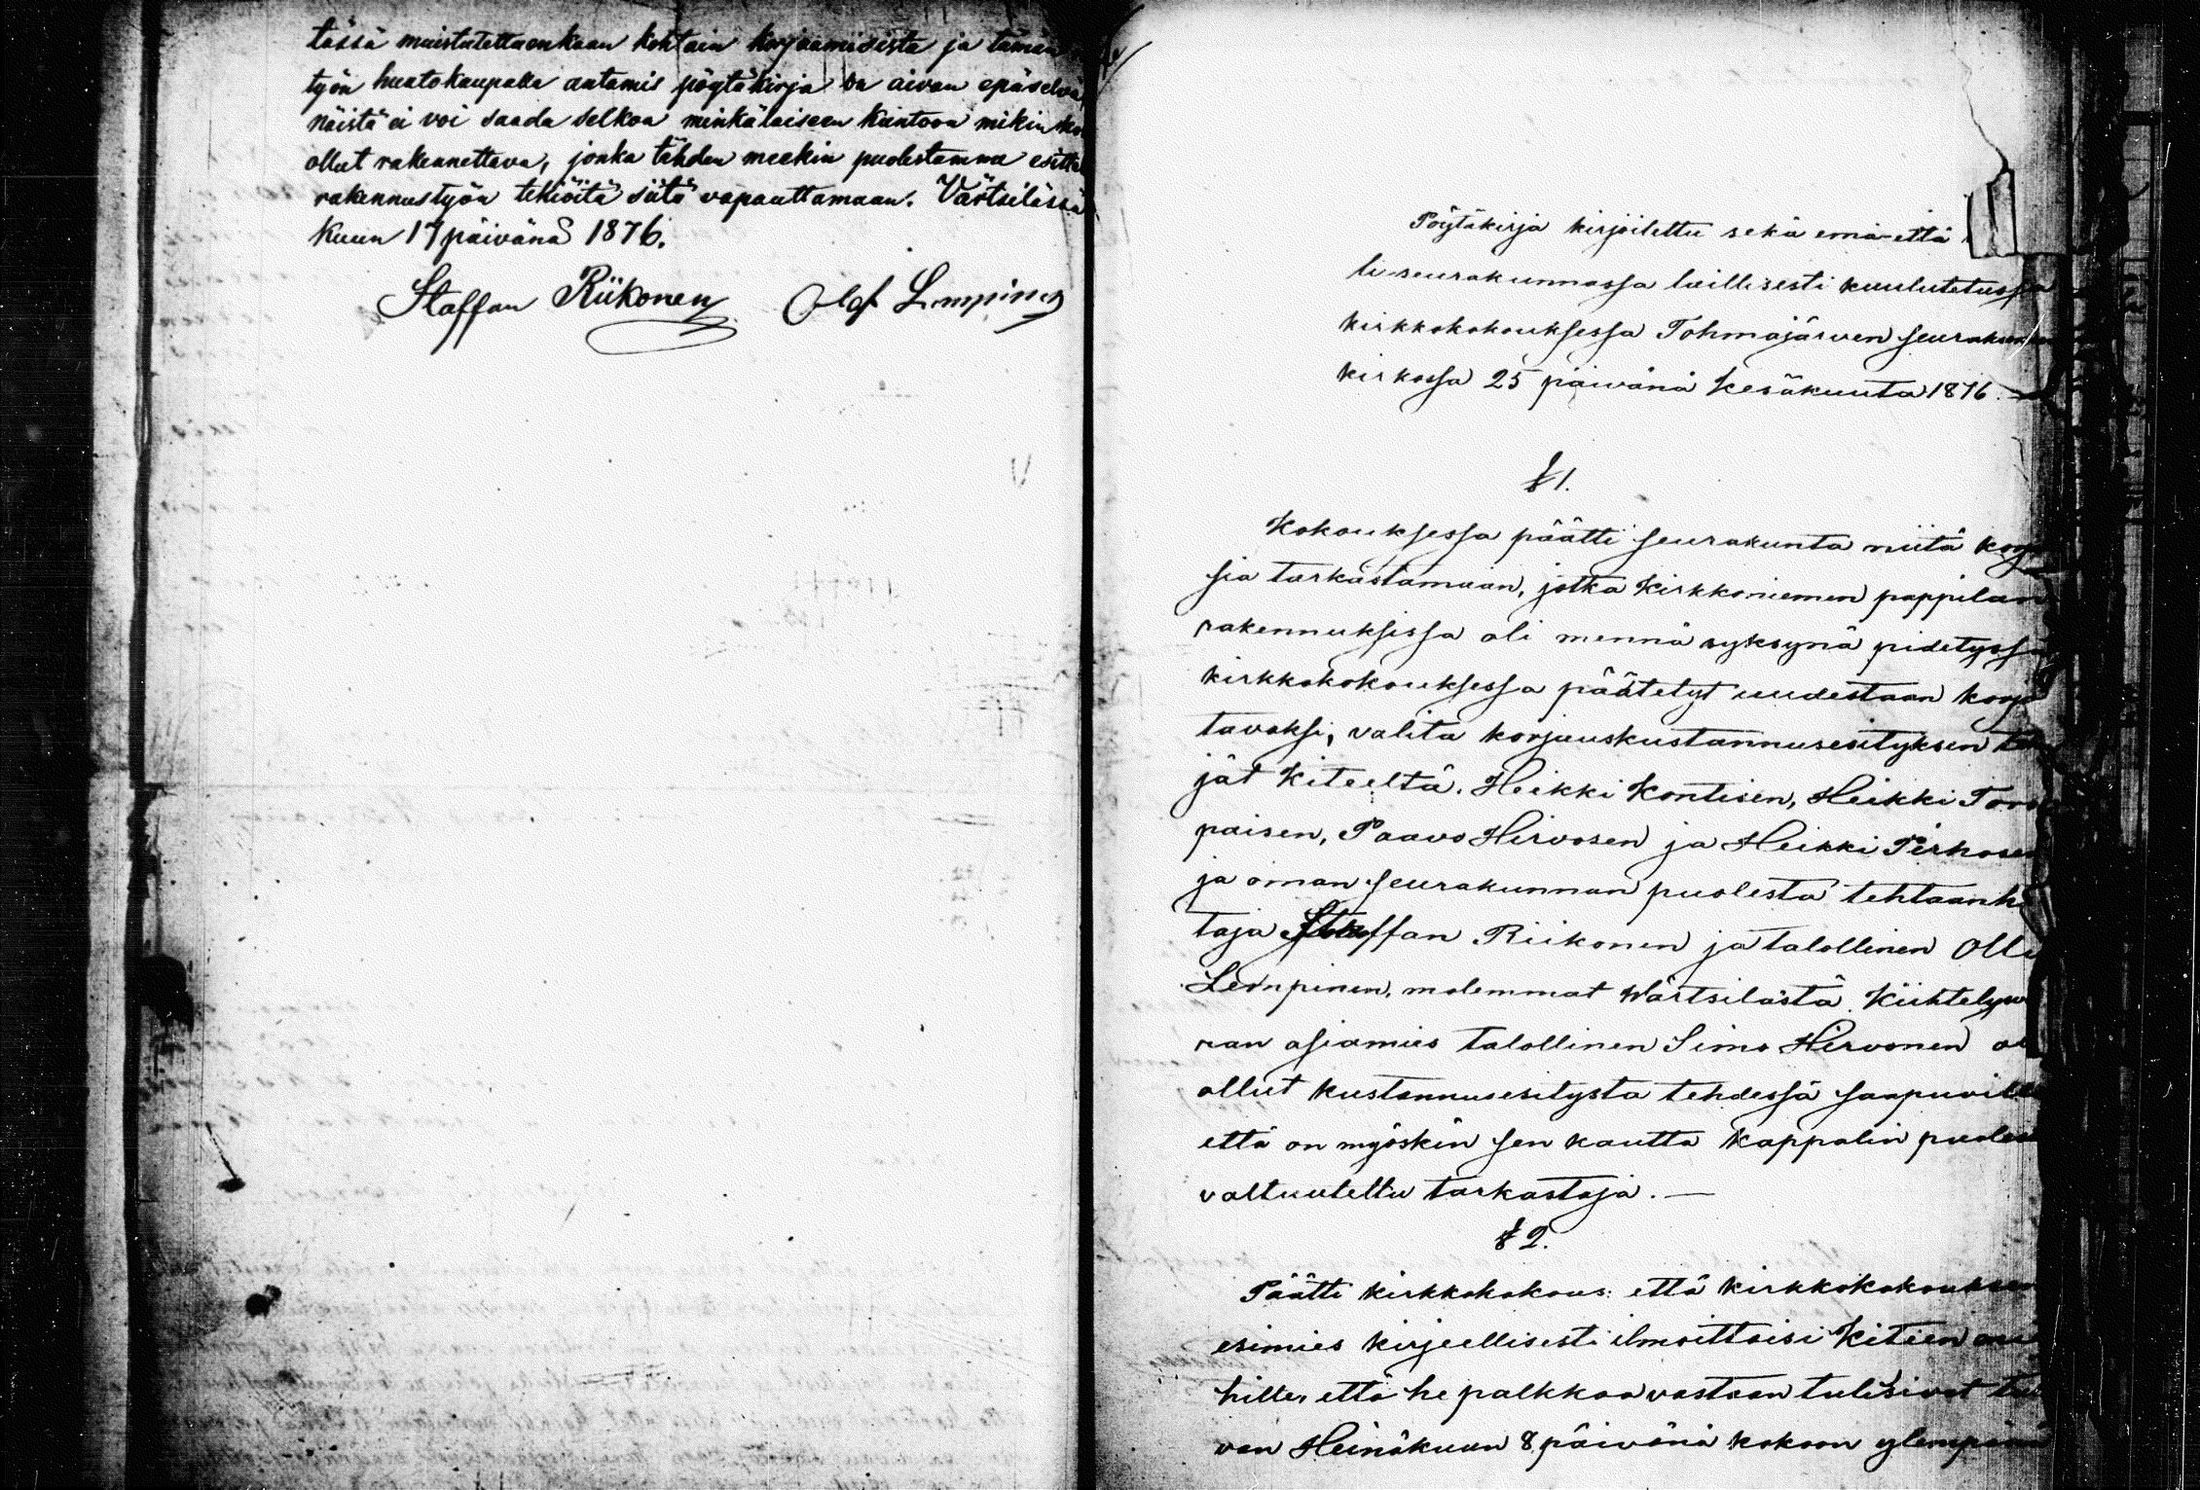 tässä muistutettuenkaan kohtain korjaamisista ja tämän
työn huutokaupalla antamis pöytäkirja on aivan epäselvä
näistä ei voi saada selkoa minkälaiseen kuntoon mikin
ollut rakennettava, jonka tähden meekin puolestamme
rakennustyön tekiöitä siitä vapauttamaan. Värtsilässä
Kuun 17 päivänä 1876.
Staffan Riikonen Olof Lempinen
Pöytäkirja kirjoitettu sekä emä-että
li-seurakunnassa laillisesti kuulutetussa
kirkkokokouksessa Tohmajärven seurakunnan
kirkossa 25 päivänä Kesäkuuta 1876.
§ 1.
Kokouksessa päätti seurakunta niitä
sia tarkastamaan, jotka Kirkkoniemen pappilan
rakennuksissa oli mennä syksynä pidetyssä
kirkkokokouksessa päätetyt uudestaan korja
tavaksi, valita korjauskustannusesityksen
jät Kiteeltä. Heikki Kontisen, Heikki
paisen, Paavo Hirvosen ja Heikki Pirhosen
ja oman seurakunnan puolesta tehtaanh
taja Staffan Riikonen ja talollinen Olli
Lempinen, molemmat Wärtsilästä. Kiihtelysv
ran asiamies talollinen Simo Hirvonen
ollut kustannusesitystä tehdessä saapuvilla
että on myöskin sen kautta kappelin puolesta
valtuutettu tarkastaja. —
§ 2.
Päätti kirkkokokous: että kirkkokokouksen
esimies kirjeellisesti ilmoittaisi Kiteen
hille, että he palkkaa vastaan tulisivat
van Heinäkuun 8 päivänä kokoon